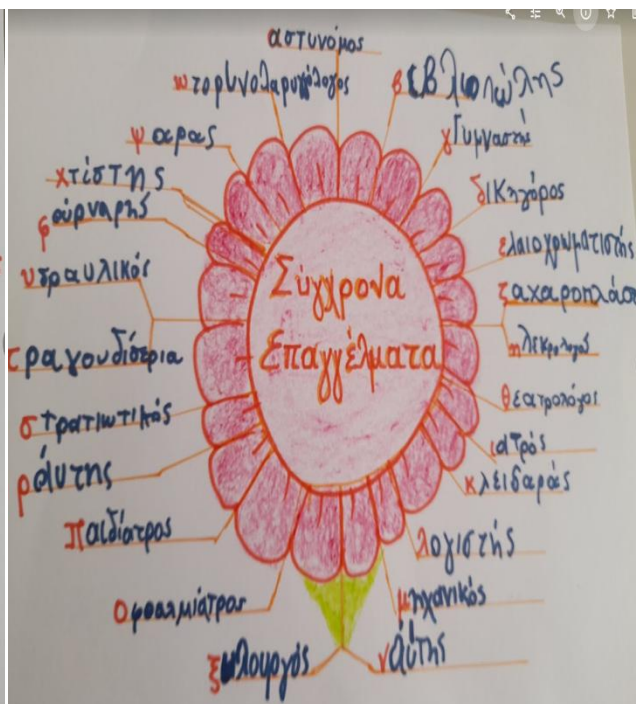 Σύγχρονα
Επαγγέλματα
αστυνόμος
βιβλιοπώλης
γυμναστής
δικηγόρος
ελαιοχρωματιστής
ζαχαροπλάσ
ηλεκρολογος
θεατρολόγος
ιατρός
κλειδαράς
λογιστής
μηχανικός
ναύτης
ξυλουργός
οφθαλμίατρος
παιδίατρος
ράυτης
στρατιωτικός
τραγουδίστρια
υδραυλικός
φούρναρης
χτίστης
ψαρας
ωτορυνολαρυγγόλογος